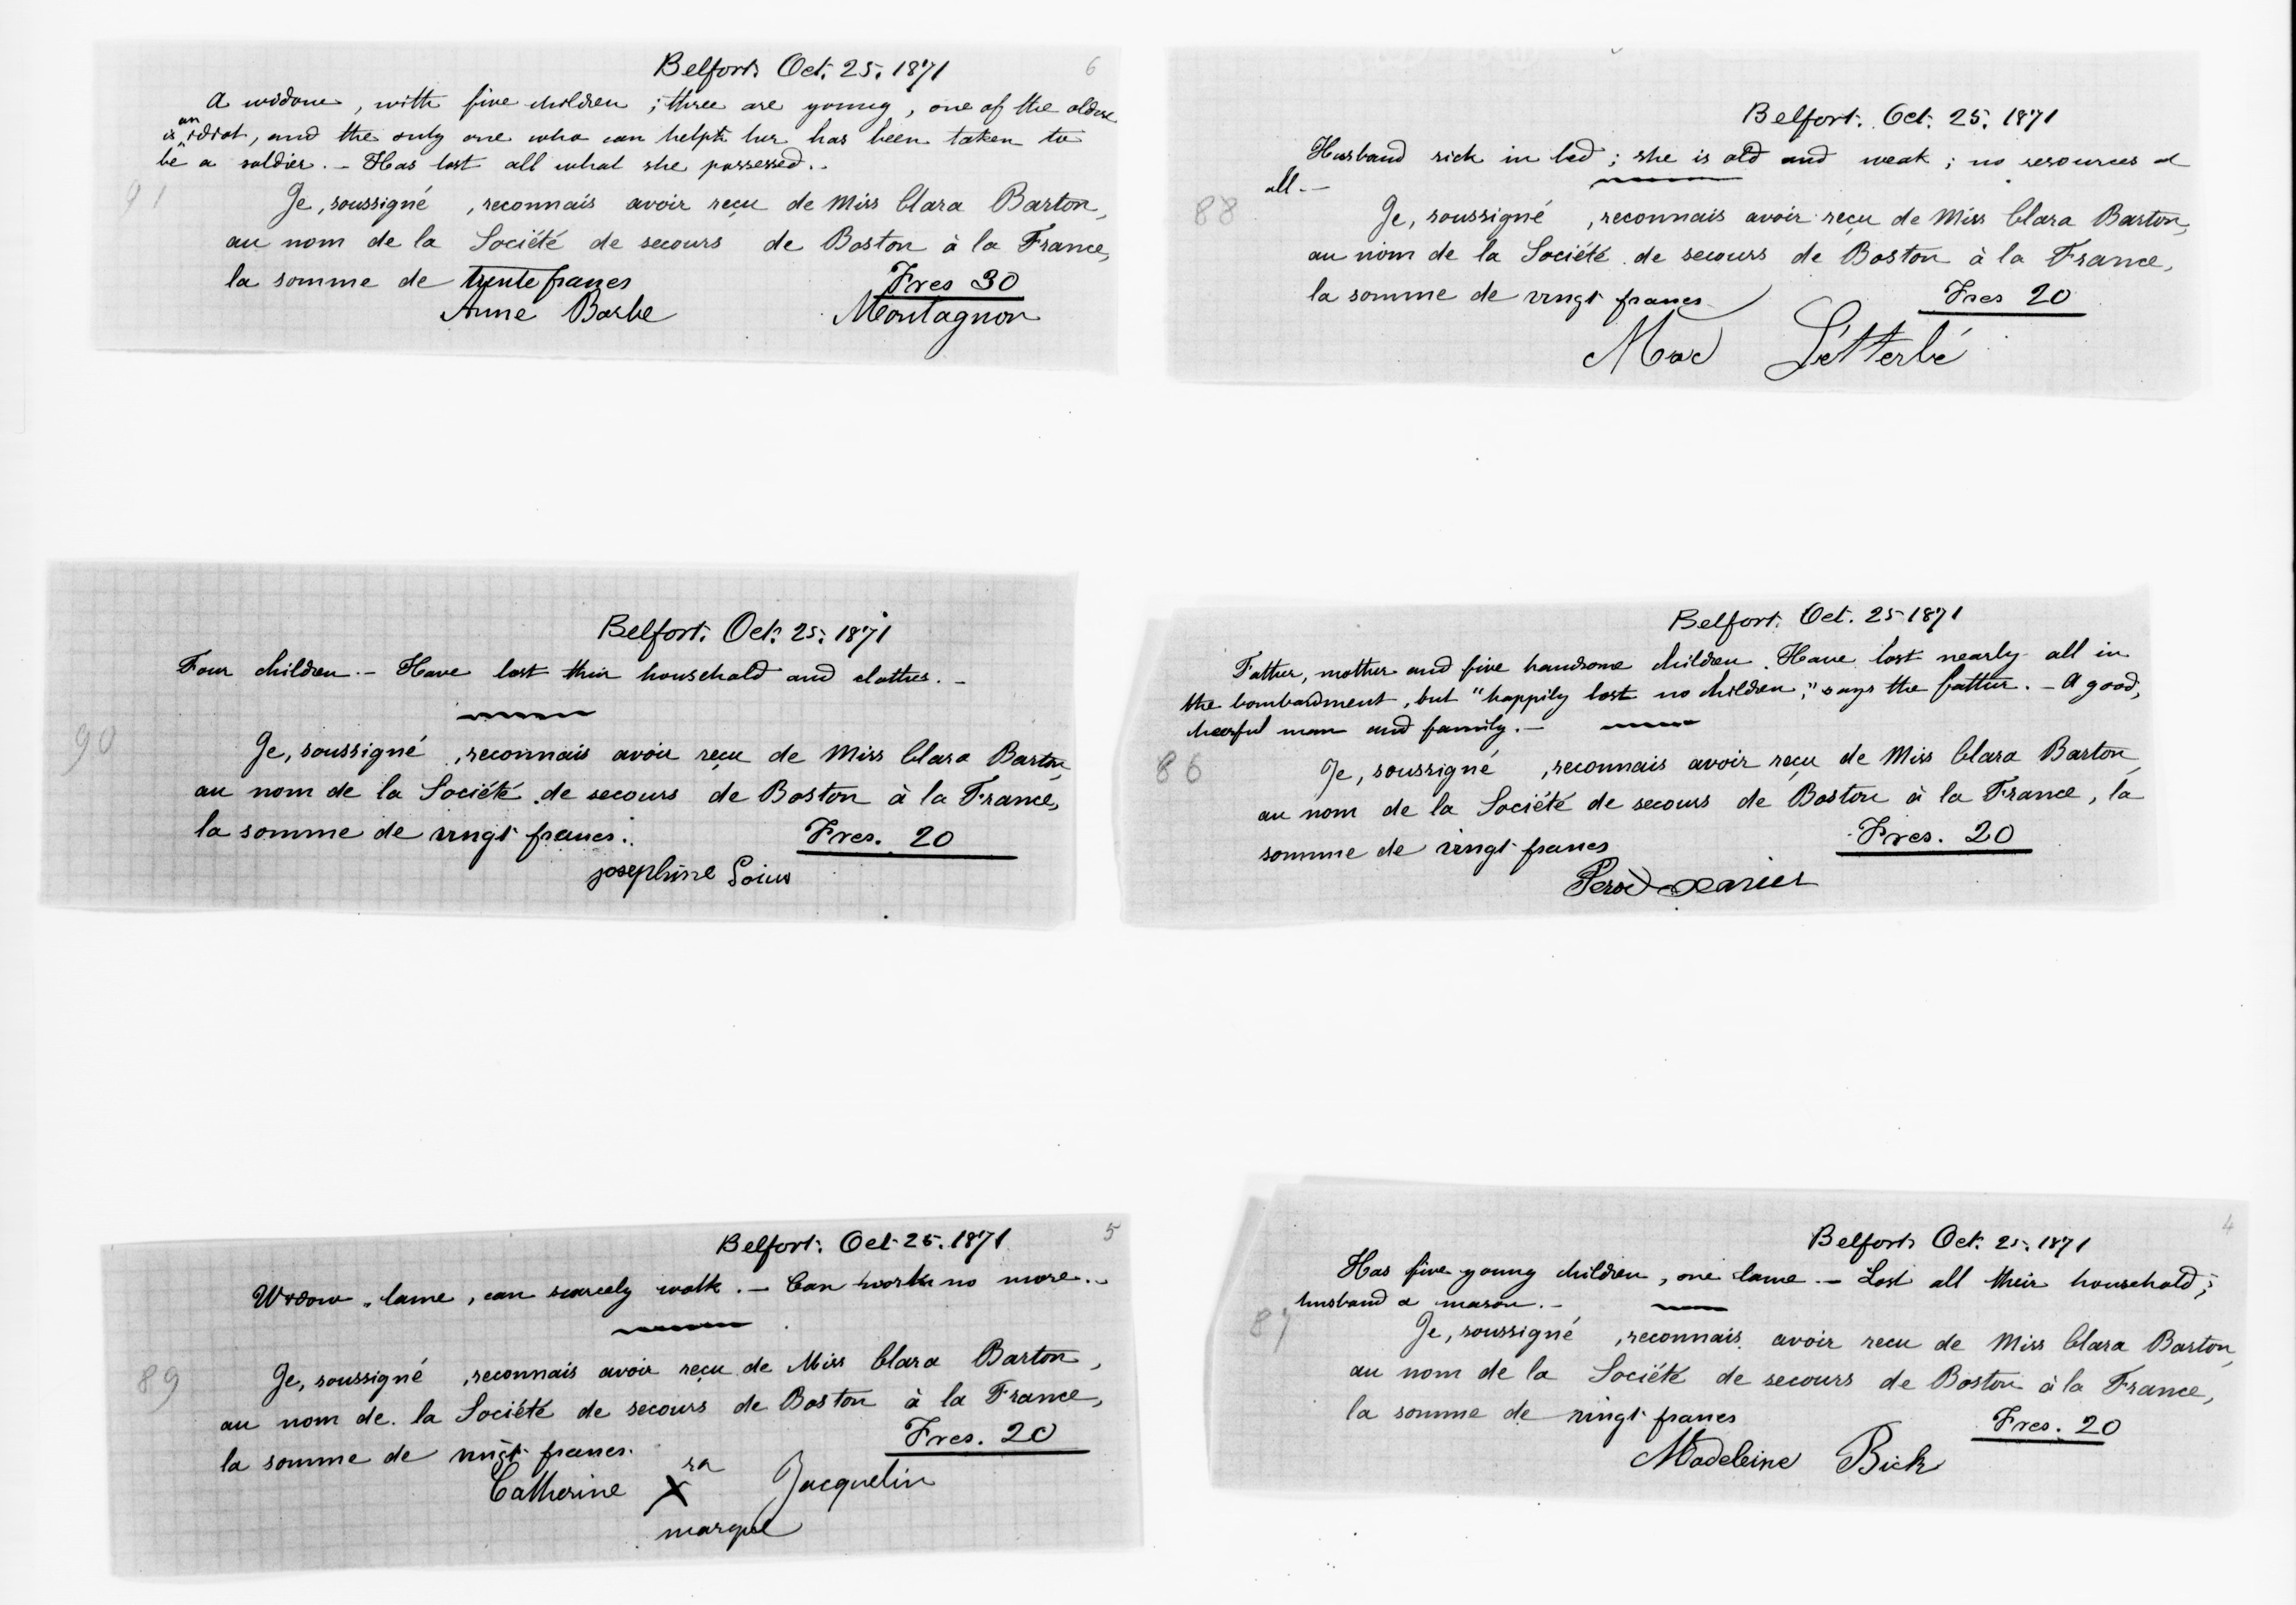 6
Belfort. Oct. 25. 1871
A widow, with five children ; three are young, one of the oldest
is an idiot, and the only one who can helpt her has been taken to
be a soldier. – Has lost all what she possessed. –
91
Je, soussigné , reconnais avoir reçu de Miss Clara Barton,
au nom de la Société de secours de Boston à la France,
la somme de trente francs Frcs 30
Anne Barbe Montagnon
Belfort. Oct. 25. 1871
Four children. – Have lost their household and clothes. –
90
Je, soussigné , reconnais avoir reçu de Miss Clara Barton,
au nom de la Société de secours de Boston à la France,
la somme de vingt francs. Frcs. 20
josephine
5
Belfort. Oct. 25. 1871
Widow, lame, can scarcely walk. – Can work no more. –
89
Je, soussigné , reconnais avoir reçu de Miss Clara Barton,
au nom de la Société de secours de Boston à la France,
la somme de vingt francs. Frcs. 20
Catherine X sa Jacquelin
marque
Belfort. Oct. 25. 1871
Husband sick in bed ; she is old and weak ; no resources at
all. –
88
Je, soussigné , reconnais avoir reçu de Miss Clara Barton,
au nom de la Société de secours de Boston à la France,
la somme de vingt francs Frcs 20
Létterbé
Belfort. Oct. 25 1871
Father, mother and five handsome children. Have lost nearly all in
the bombardment, but "happily lost no children," says the father. – A good,
cheerful man and family. –
86
Je, soussigné , reconnais avoir reçu de Miss Clara Barton,
au nom de la Société de secours de Boston à la France, la
somme de vingt francs Frcs. 20
4
Belfort. Oct. 25. 1871
Has five young children, one lame. – Lost all their household ;
husband a mason. –
87
Je, soussigné , reconnais avoir recu de Miss Clara Barton,
au nom de la Société de secours de Boston à la France,
la somme de vingt francs Frcs. 20
Madeleine Bick